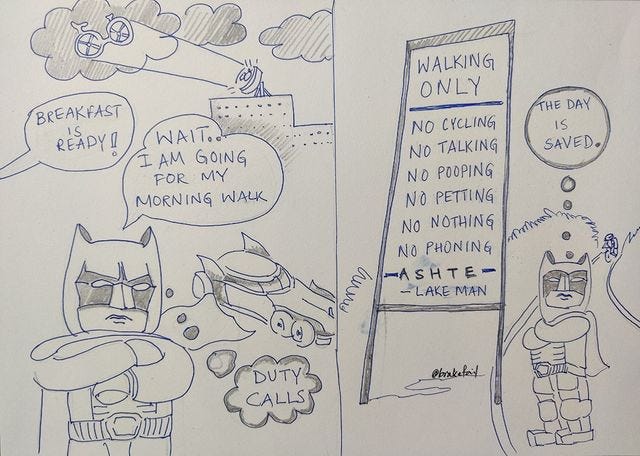 BREAKFAST
IS
READY!
WAIT..
I AM GOING
FOR MY
MORNING WALK
DUTY
CALLS
WALKING
ONLY
NO CYCLING
NO TALKING
NO POOPING
NO PETTING
NO NOTHING
NO PHONING
-ASHTE-
- LAKE MAN
THE DAY
IS
SAVED.